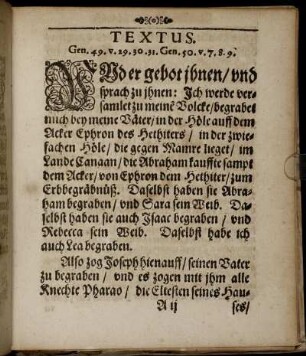 TEXTUS.
Gen. 49. v. 29. 30. 31. Gen. 50. v. 7. 8. 9.
UNd er gebot jhnen / vnd
sprach zu jhnen: Ich werde ver-
samlet zu meinē Volcke / begrabet
mich bey meine Väter / in der Höle auff dem
Acker Ephron des Hethiters / in der zwie-
fachen Höle / die gegen Mamre lieget / im
Lande Canaan / die Abraham kauffte sampt
dem Acker / von Ephron dem Hethiter / zum
Erbbegräbnüß. Daselbst haben sie Abra-
ham begraben / vnd Sara sein Weib. Da-
selbst haben sie auch Isaac begraben / vnd
Rebecca sein Weib. Daselbst habe ich
auch Lea begraben.
Also zog Joseph hienauff / seinen Vater
zu begraben / vnd es zogen mit jhm alle
Knechte Pharao / die Eltesten seines Hau-
A ij
ses /